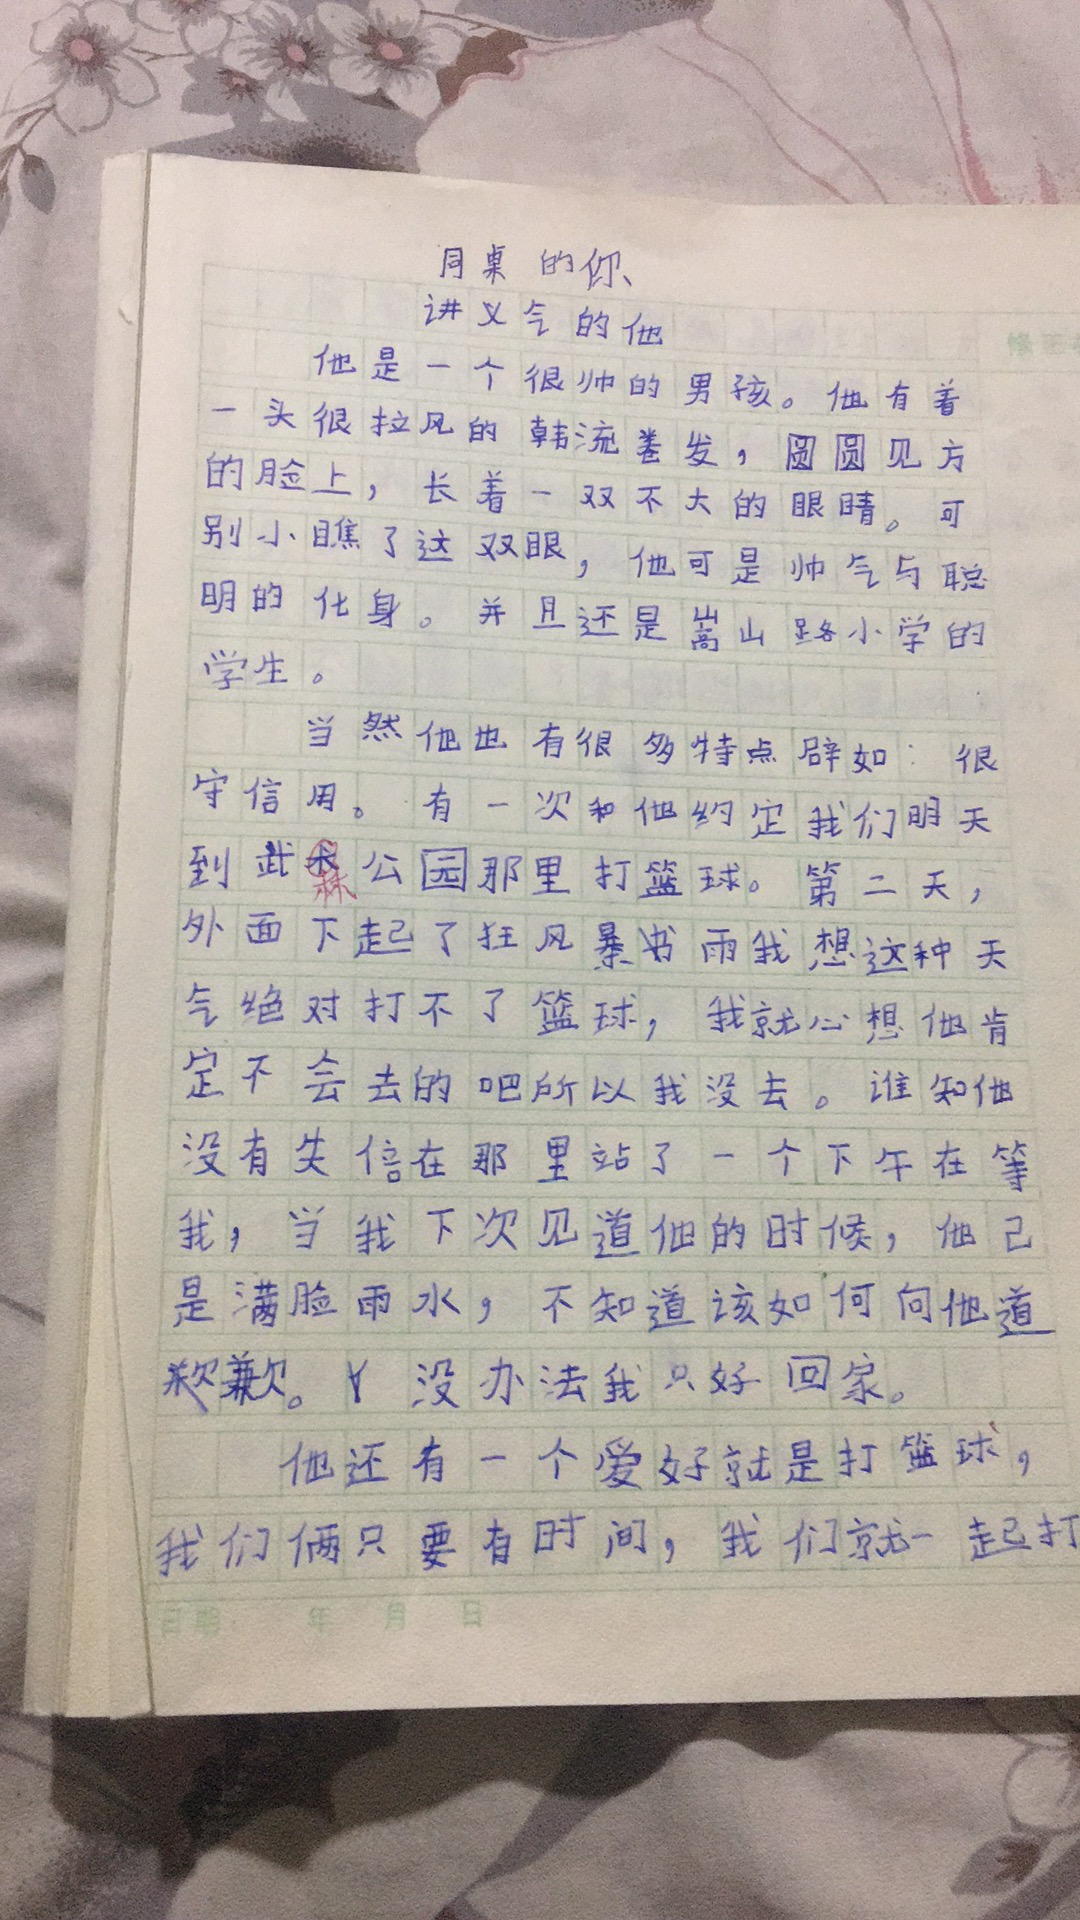 同桌的你、
讲义气的他
他是一个很帅的男孩。他有着
一头很拉风的韩流卷发，圆圆见方
的脸上，长着一双不大的眼睛。可
别小瞧了这双眼，他可是帅气与聪
明的化身。并且还是嵩山路小学的
学生。
当然他也有很多特点辟如：很
守信用。有一次和他约定我们明天
到武林公园那里打篮球。第二天，
外面下起了狂风暴雨我想这种天
气绝对打不了篮球，我就心想他肯
定不会去的吧所以我没去。谁知他
没有失信在那里站了一个下午在等
我，当我下次见道他的时候，他己
是满脸雨水，不知道该如何向他道
歉。没办法我只好回家。
他还有一个爱好就是打篮球，
我们俩只要有时间，我们就一起打
日期 年 月 日